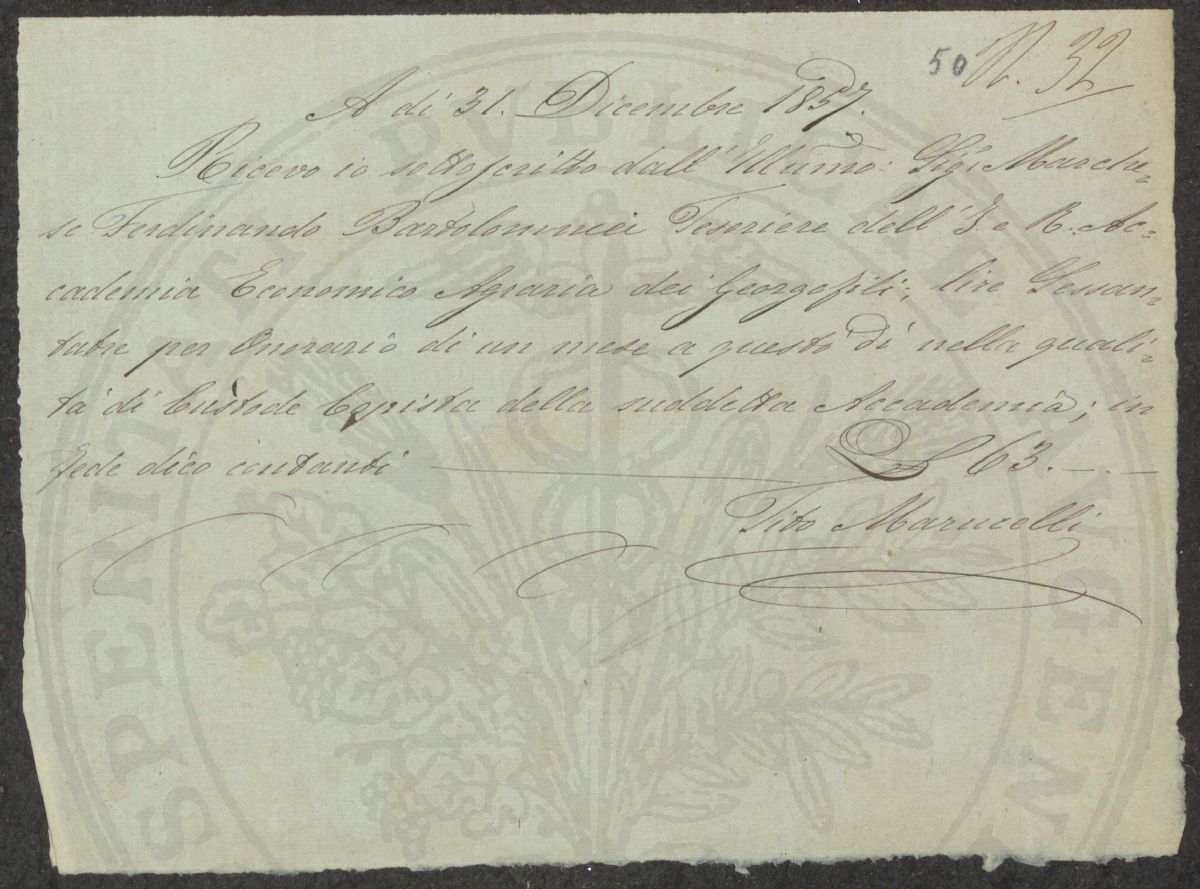 50 N. 32
A di 31. Dicembre 1857.
Ricevo io sottoscritto dall' Illumo: Sigr Marche=
se Ferdinando Bartolommei Tesoriere dell' I e R. Ac=
cademia Economico Agraria dei Georgofili, lire Sessan=
tatre per Onorario di un mese a questo dì nella quali=
tà di Custode Copista della suddetta Accademia; in
fede dico contanti L 63. –
Tito Marucelli
PROSPERITATI PVBLICAE AVGENDAE